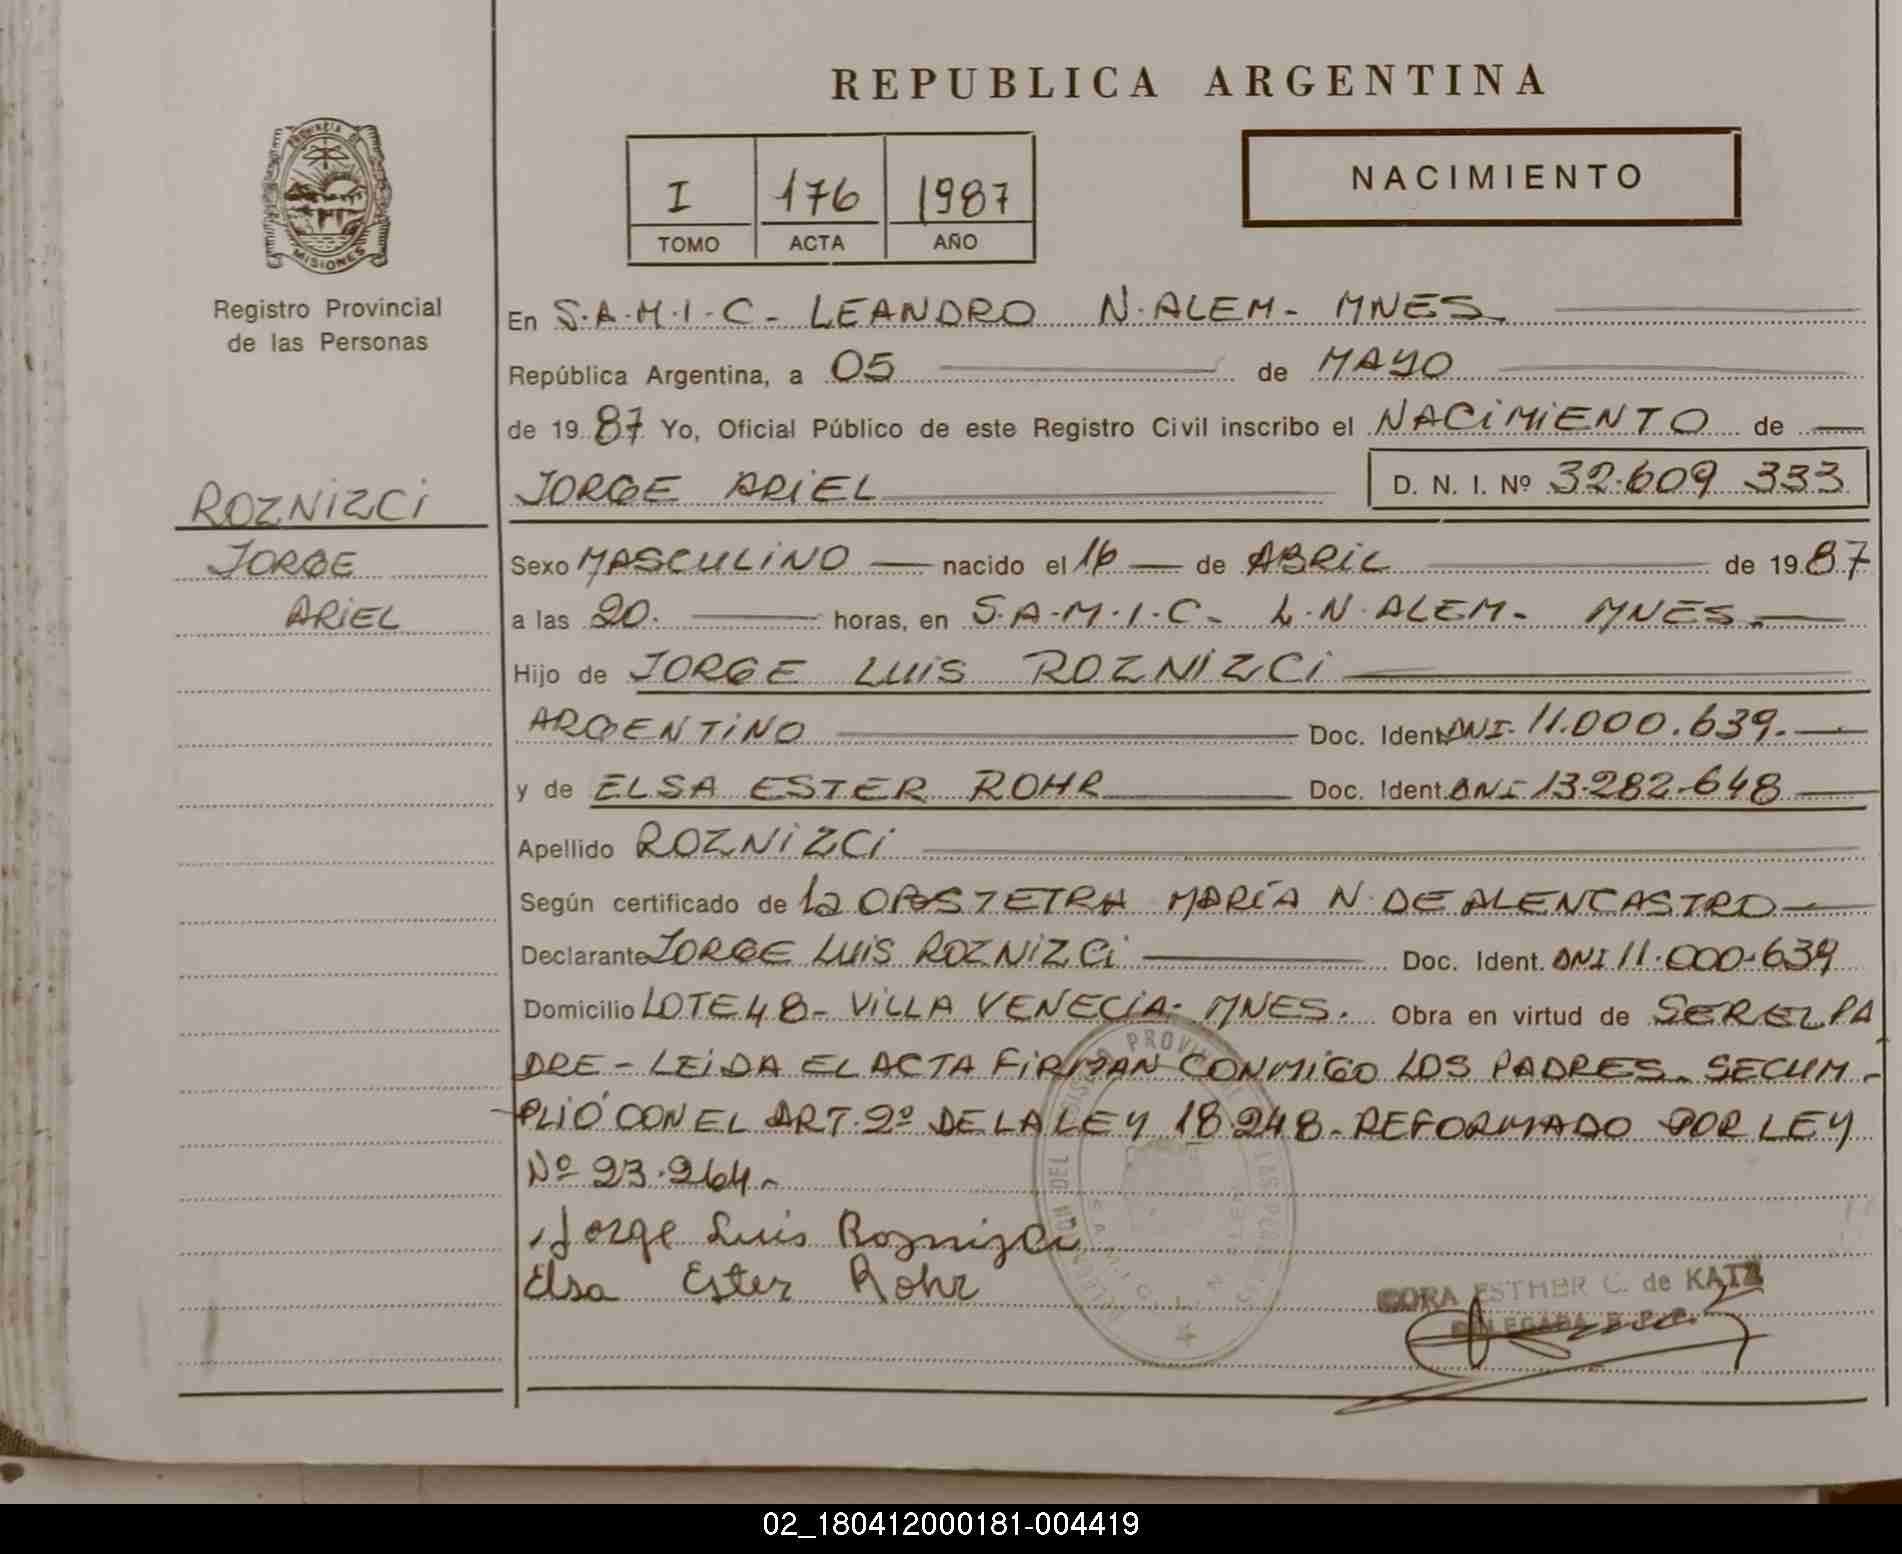 REPUBLICA ARGENTINA
PROVINCIA DE
MISIONES
Registro Provincial
de las Personas
I 176 1987
TOMO ACTA AÑO
NACIMIENTO
En S.A.M.I.C- LEANDRO N.ALEM- MNES.
República Argentina, a 05 de MAYO
de 1987 Yo, Oficial Público de este Registro Civil inscribo el NACiMiENTO de
JORGE ARiEL D. N. I. Nº 32.609 333
ROZNiZCi
JORGE
ARiEL
Sexo MASCULiNO nacido el 16 de ABRiL de 1987
a las 20. horas, en S.A.M.I.C- L.N.ALEM- MNES.
Hijo de JORGE LUiS ROZNiZCi
ARGENTiNO Doc. Ident. DNI- 11.000.639.
y de ELSA ESTER ROHR Doc. Ident. DNI- 13.282.648
Apellido ROZNiZCi
Según certificado de la OBSTETRA MARÍA N. DE ALENCASTRO
Declarante JORGE LUiS ROZNiZCi Doc. Ident. DNI 11.000.639
Domicilio LOTE 48- ViLLA VENECiA- MNES. Obra en virtud de SER EL PA
DRE - LEiDA EL ACTA FiRMAN CONMiGO LOS PADRES. SE CUM-
PLiÓ CON EL ART. 2º DE LA LEY 18.248- REFORMADO POR LEY
Nº 23.264.-
Jorge Luis Roznizci
Elsa Ester Rohr
CORA ESTHER C. de KATZ
DELEGADA R. P. P.
02_180412000181-004419